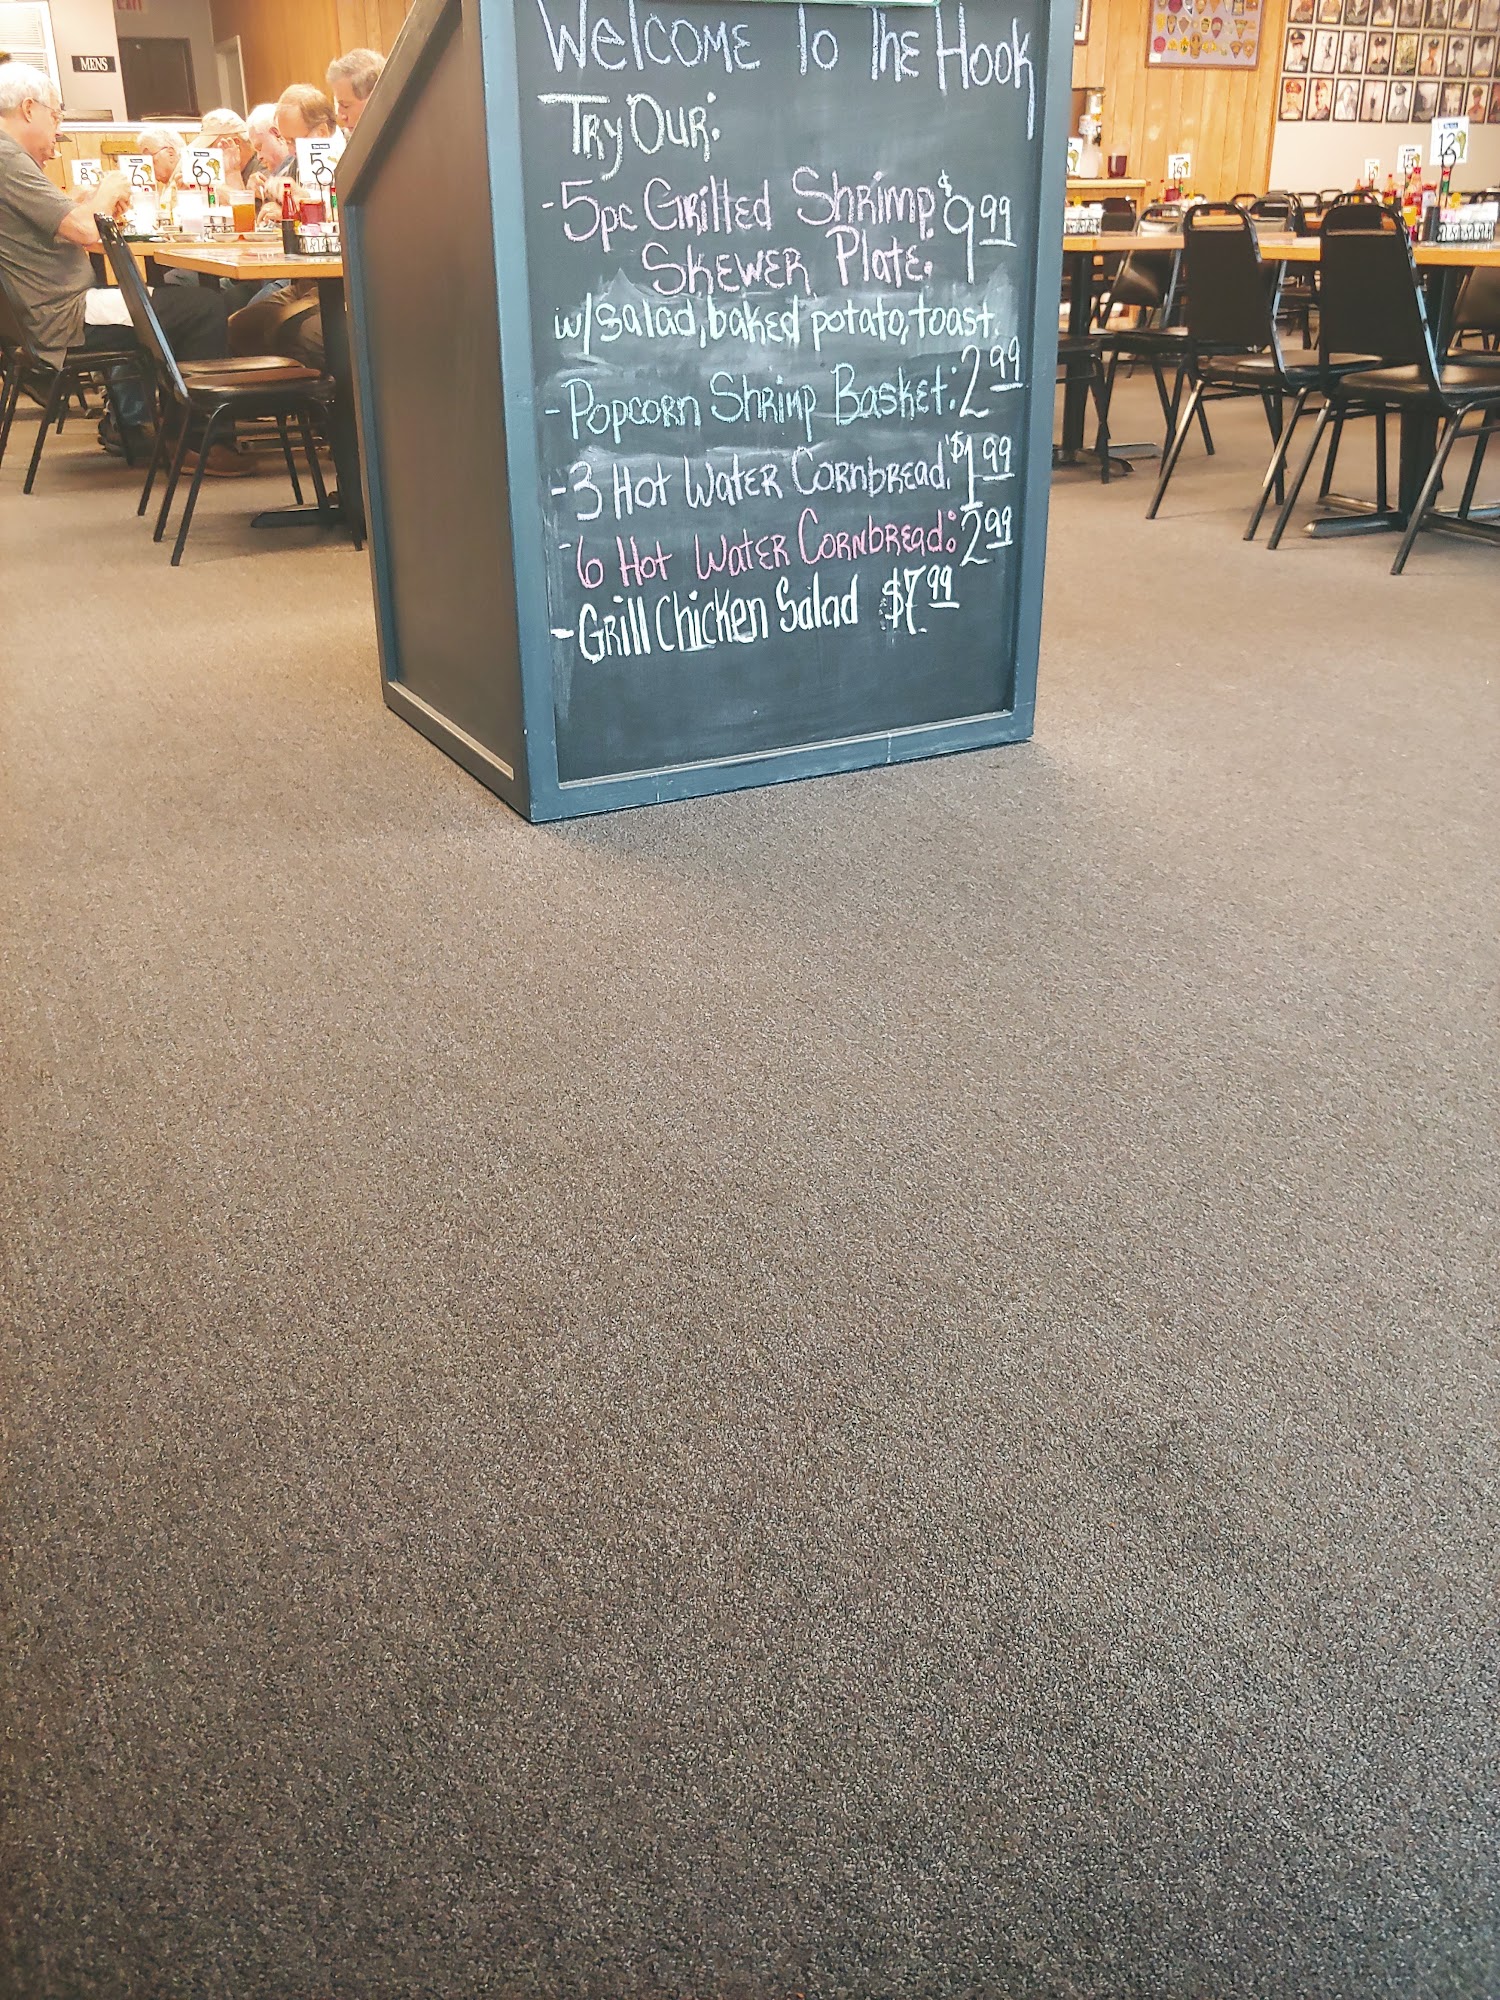 Welcome To The Hook
Try Our:
-5pc Grilled Shrimp $9.99
Skewer Plate.
w/salad, baked potato, toast.
-Popcorn Shrimp Basket: 2.99
-3 Hot Water Cornbread. $1.99
-6 Hot Water Cornbread: 2.99
-Grill Chicken Salad $7.99
MENS
8
7
6
5
12